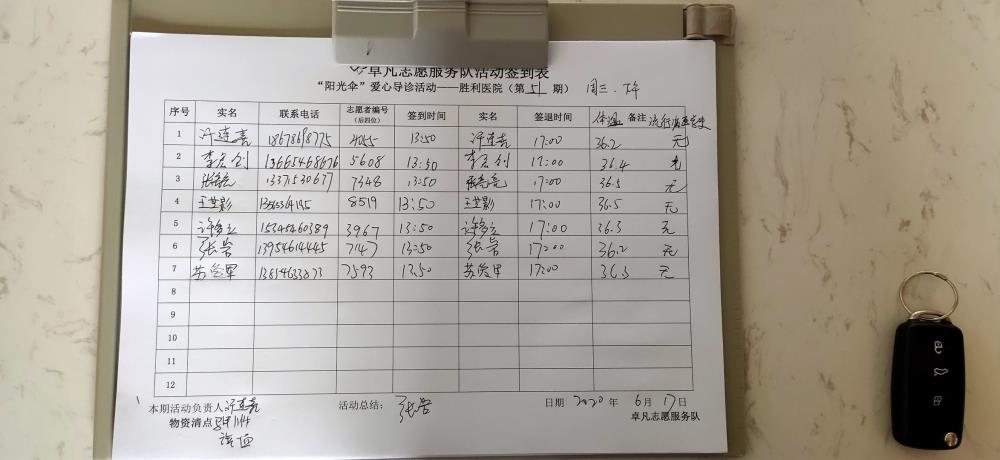 卓凡志愿服务队活动签到表
“阳光伞”爱心导诊活动——胜利医院（第 51 期） 周三.下午
序号 实名 联系电话 志愿者编号（后四位） 签到时间 实名 签退时间 体温 备注 流行
1 许连喜 18678698775 4055 13:50 许连喜 17:00 36.2 无
2 李宏创 13665468676 5608 13:50 李宏创 17:00 36.4 无
3 张亮亮 13371530677 7348 13:50 张亮亮 17:00 36.5 无
4 王堂影 8519 13:50 王堂影 17:00 36.5 无
5 15345460389 3967 13:50 17:00 36.3 无
6 张岩 13954614445 7147 13:50 张岩 17:00 36.2 无
7 苏爱军 13854633873 7593 13:50 苏爱军 17:00 36.3 无
8
9
10
11
12
本期活动负责人 许连喜 活动总结： 张岩 日期 2020 年 6 月 17 日
物资清点 卓凡志愿服务队